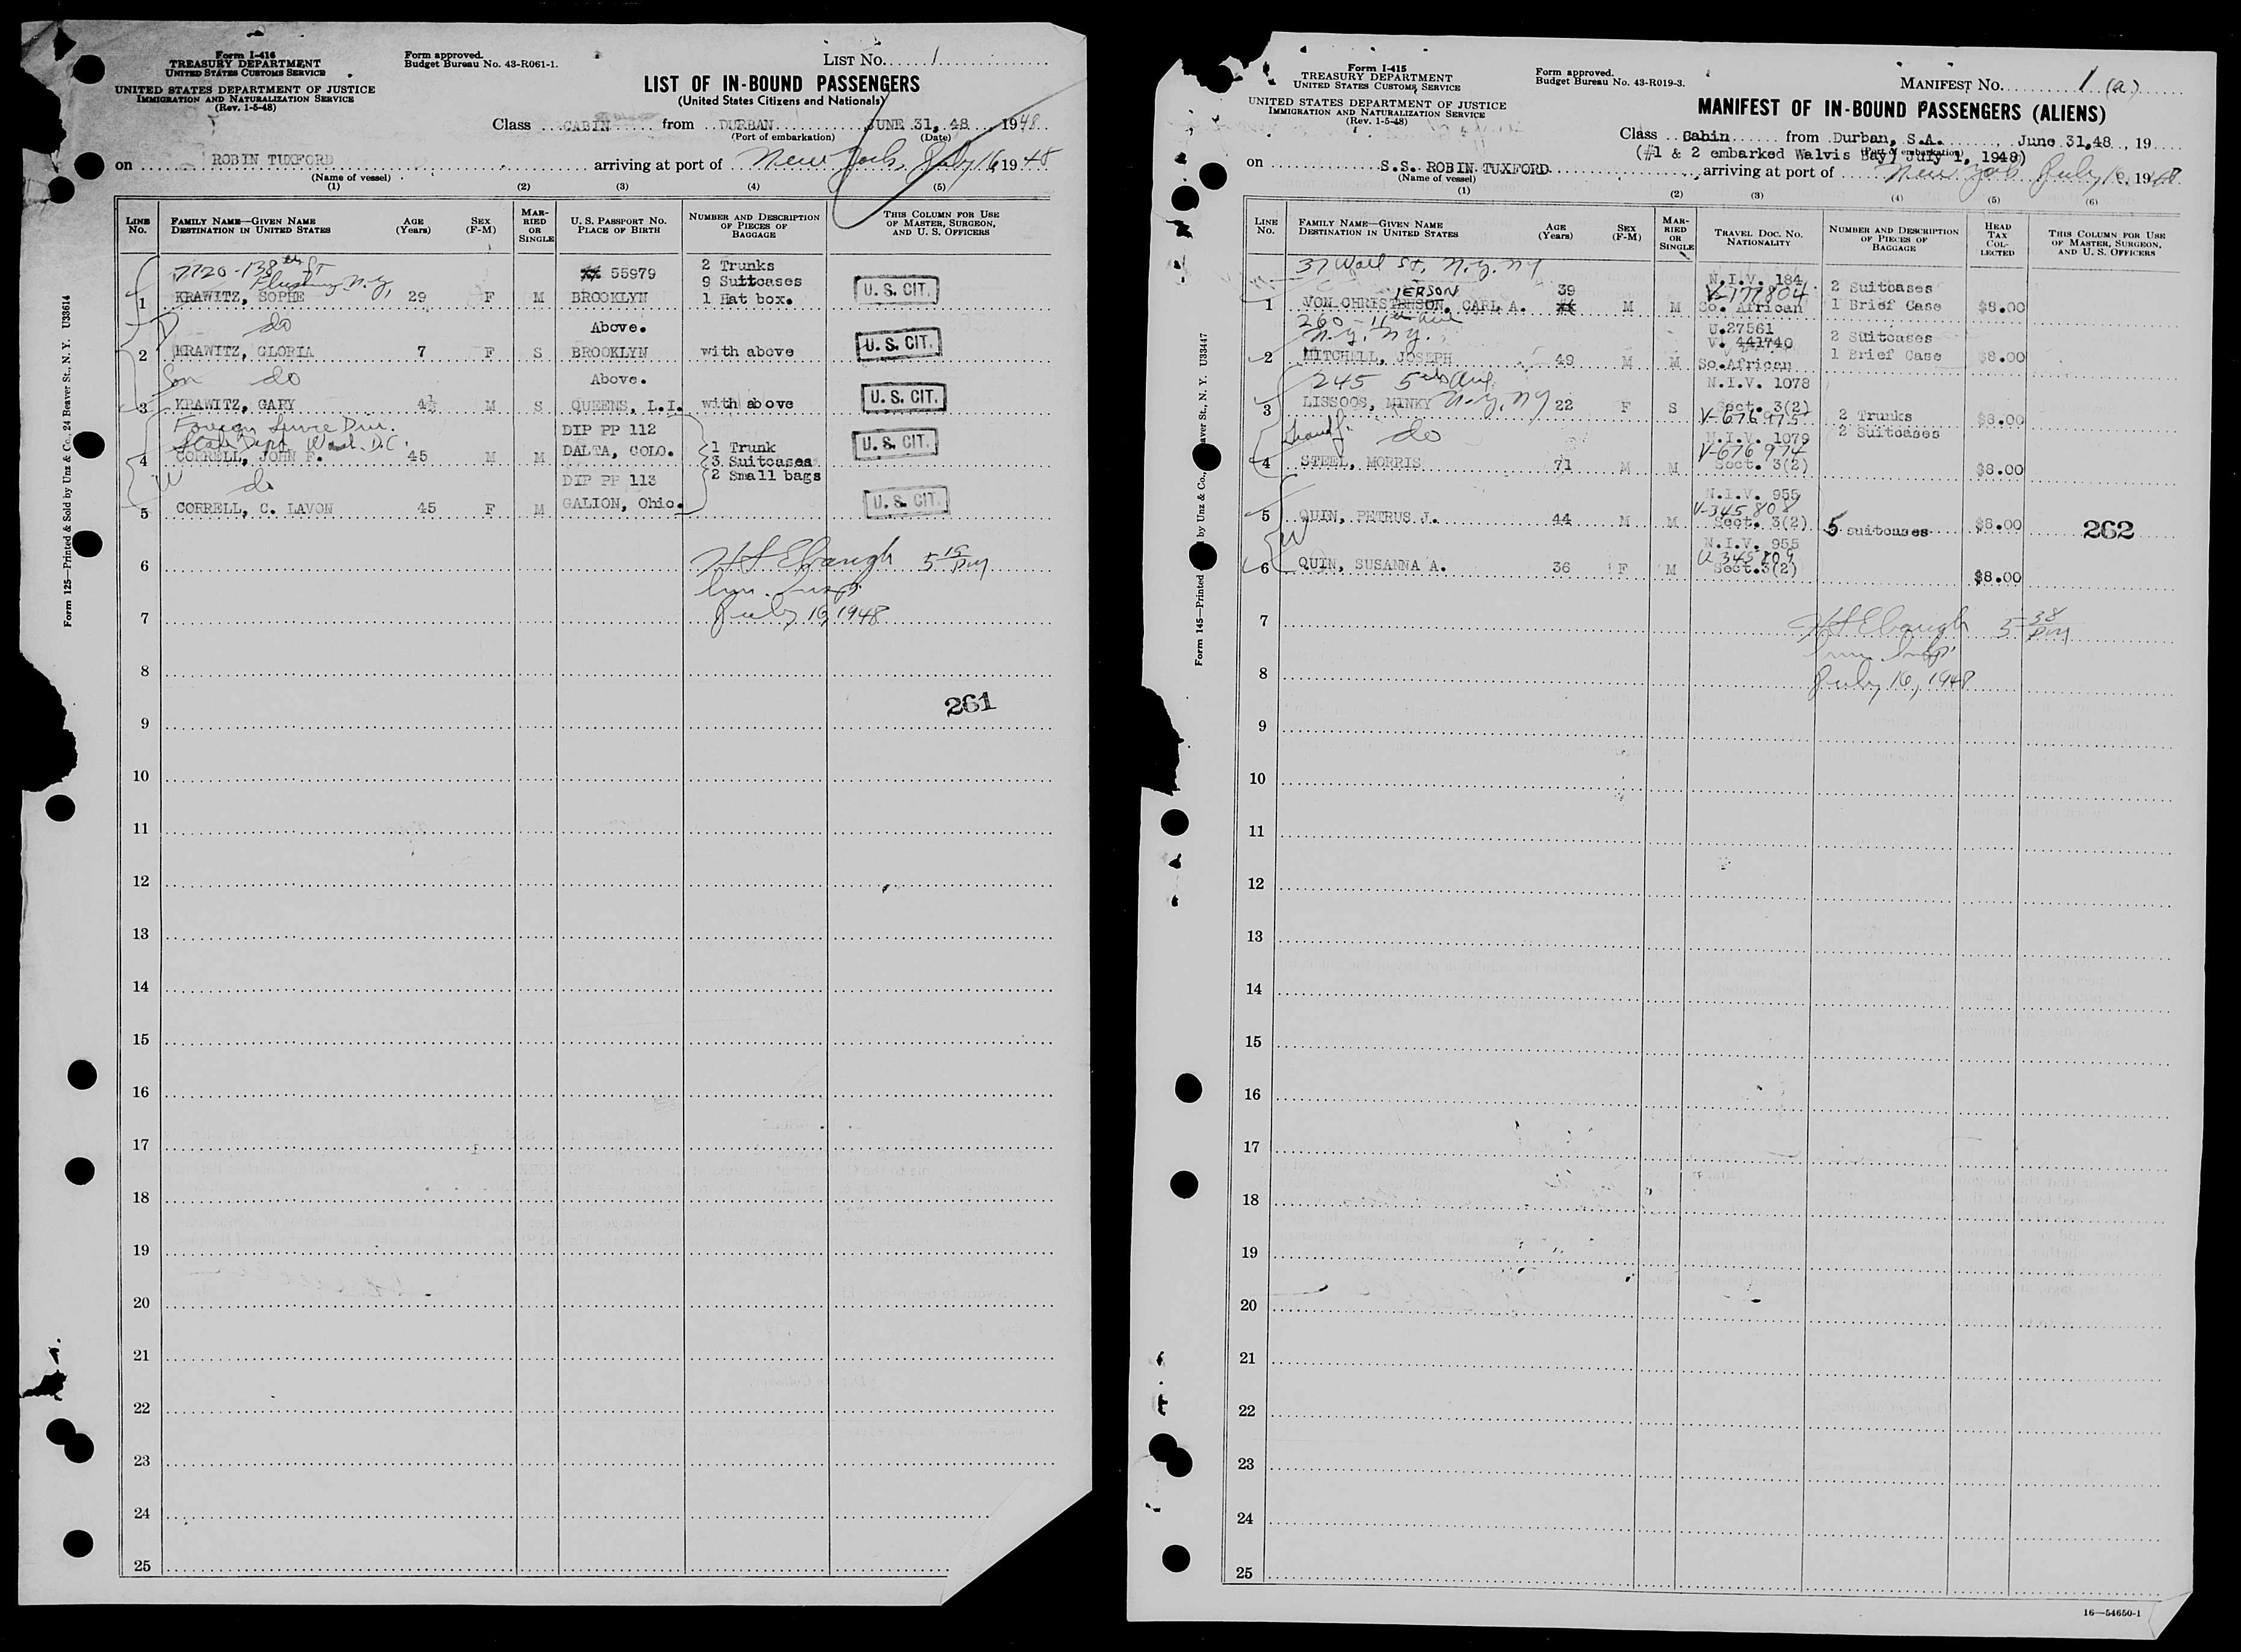 Form I-416
TREASURY DEPARTMENT
UNITED STATES CUSTOMS SERVICE
UNITED STATES DEPARTMENT OF JUSTICE
IMMIGRATION AND NATURALIZATION SERVICE
(Rev. 1-5-48)
Form approved.
Budget Bureau No. 43-R061-1.
LIST No. 1
LIST OF IN-BOUND PASSENGERS
(United States Citizens and Nationals)
Class CABIN from DURBAN JUNE 31, 48, 1948
(Port of embarkation) (Date)
on ROBIN TUXFORD arriving at port of New York, July 16, 1948
(Name of vessel)
(1) (2) (3) (4) (5)
LINE No. FAMILY NAME—GIVEN NAME DESTINATION IN UNITED STATES AGE (Years) SEX (F-M) MARRIED OR SINGLE U. S. PASSPORT NO. PLACE OF BIRTH NUMBER AND DESCRIPTION OF PIECES OF BAGGAGE THIS COLUMN FOR USE OF MASTER, SURGEON, AND U. S. OFFICERS
7720-138th St 55979 2 Trunks
Flushing N.Y. 9 Suitcases
1 KRAWITZ, SOPHE 29 F M BROOKLYN 1 Hat box. U. S. CIT.
do Above.
2 KRAWITZ, GLORIA 7 F S BROOKLYN with above U. S. CIT.
Son do Above.
3 KRAWITZ, GARY 4½ M S QUEENS, L.I. with above U. S. CIT.
Foreign Service Div. DIP PP 112
State Dept. Wash. D.C.
4 CORRELL, JOHN F. 45 M M DALTA, COLO. 1 Trunk U. S. CIT.
3 Suitcases
W do DIP PP 113 2 Small bags
5 CORRELL, C. LAVON 45 F M GALION, Ohio. U. S. CIT.
6 H S Ebaugh 5 15 PM
Imm. Insp.
7 July 16, 1948
8
261
9
10
11
12
13
14
15
16
17
18
19
20
21
22
23
24
25
Form 125—Printed & Sold by Unz & Co., 24 Beaver St., N. Y. U33614
Form I-415
TREASURY DEPARTMENT
UNITED STATES CUSTOMS SERVICE
UNITED STATES DEPARTMENT OF JUSTICE
IMMIGRATION AND NATURALIZATION SERVICE
(Rev. 1-5-48)
Form approved.
Budget Bureau No. 43-R019-3.
MANIFEST No. 1 (a)
MANIFEST OF IN-BOUND PASSENGERS (ALIENS)
Class Cabin from Durban, S.A., June 31, 48, 19
(Port of embarkation)
(#1 & 2 embarked Walvis Bay, July 1, 1948)
on S.S. ROBIN TUXFORD arriving at port of New York July 16, 1948
(Name of vessel)
(1) (2) (3) (4) (5) (6)
LINE No. FAMILY NAME—GIVEN NAME DESTINATION IN UNITED STATES AGE (Years) SEX (F-M) MARRIED OR SINGLE TRAVEL DOC. NO. NATIONALITY NUMBER AND DESCRIPTION OF PIECES OF BAGGAGE HEAD TAX COLLECTED THIS COLUMN FOR USE OF MASTER, SURGEON, AND U. S. OFFICERS
37 Wall St. N.Y. NY N.I.V. 184
IERSON 39 V-177804 2 Suitcases
1 VON CHRISTENSON, CARL A. M M So. African 1 Brief Case $8.00
260-11th Ave U.27561
N.Y. N.Y. V. 441740 2 Suitcases
2 MITCHELL, JOSEPH 49 M M So.African 1 Brief Case $8.00
245 5th Ave N.I.V. 1078
3 LISSOOS, MINKY N.Y. NY 22 F S Sect. 3(2) 2 Trunks $8.00
V-676975
Grandf. do N.I.V. 1079 2 Suitcases
V-676974
4 STEEL, MORRIS 71 M M Sect. 3(2) $8.00
N.I.V. 955
V-345808
5 QUIN, PETRUS J. 44 M M Sect. 3(2) 5 suitcases $8.00 262
W N.I.V. 955
V 345809
6 QUIN, SUSANNA A. 36 F M Sect.3(2) $8.00
7 H S Ebaugh 5 38 PM
Imm. Insp.
8 July 16, 1948
9
10
11
12
13
14
15
16
17
18
19
20
21
22
23
24
25
16—54650-1